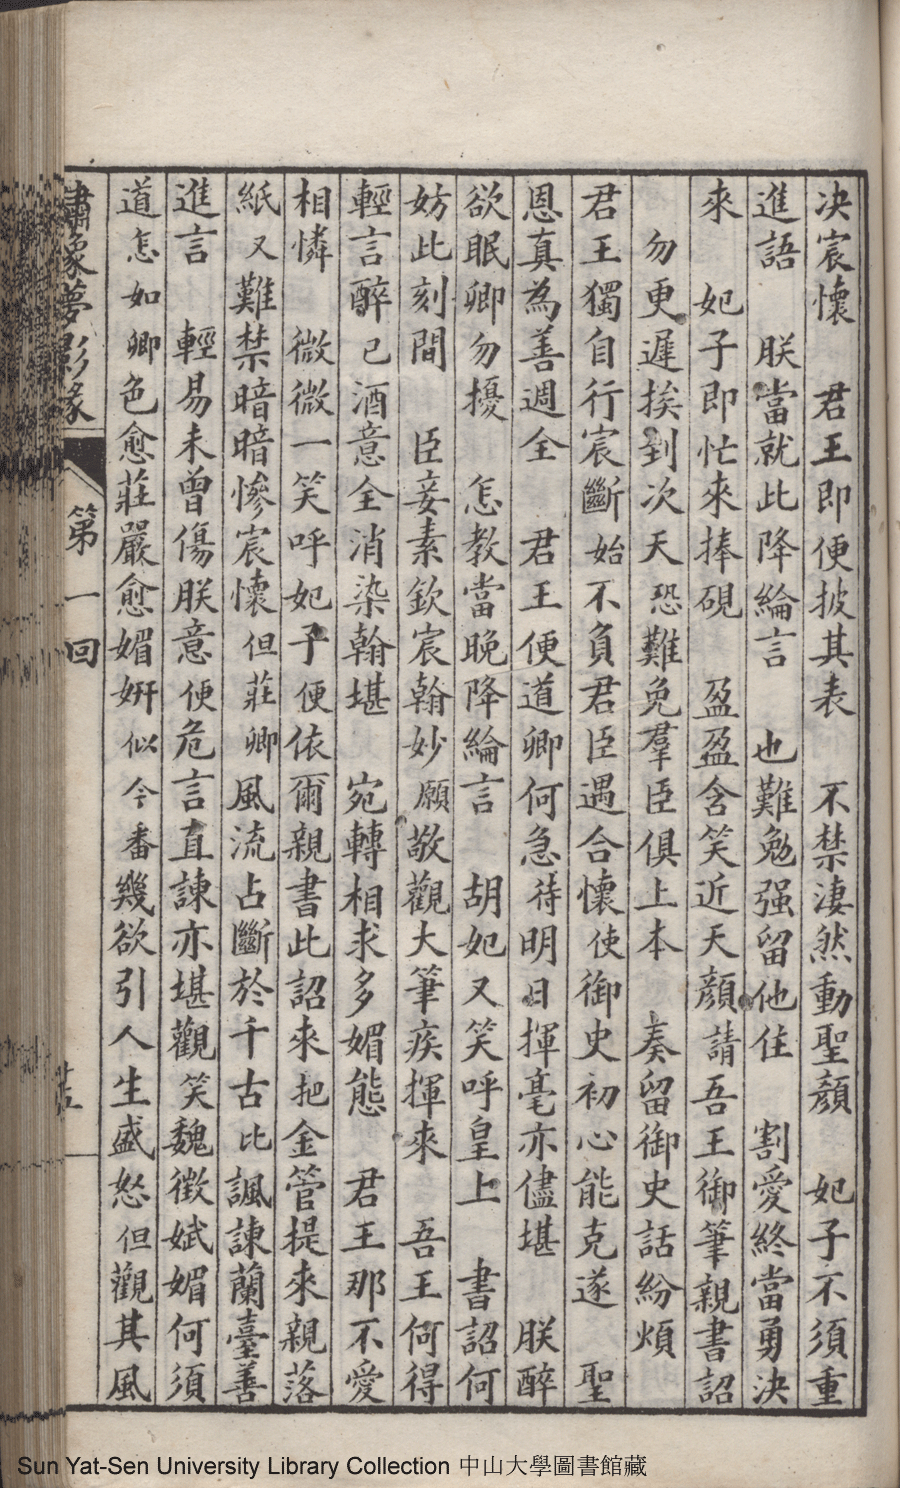 决宸懷　君王即便披其表　不禁淒然動聖顏　妃子不須重
進語　朕當就此降綸言　也難勉强留他住　割愛終當勇決
來　妃子即忙來捧硯　盈盈含笑近天顏請吾王御筆親書詔
勿更遲挨到次天恐難免羣臣俱上本　奏留御史話紛煩
君王獨自行宸斷始不負君臣遇合懷使御史初心能克遂　聖
恩真為善週全　君王便道卿何急待明日揮毫亦儘堪　朕醉
欲眠卿勿擾　怎教當晚降綸言　胡妃又笑呼皇上　書詔何
妨此刻間　臣妾素欽宸翰妙願敬觀大筆疾揮來　吾王何得
輕言醉已酒意全消染翰堪　宛轉相求多媚態　君王那不愛
相憐　微微一笑呼妃子便依爾親書此詔來把金管提來親落
紙又難禁暗暗慘宸懷但莊卿風流占斷於千古比諷諫蘭臺善
進言　輕易未曾傷朕意便危言直諫亦堪觀笑魏徵娬媚何須
道怎如卿色愈莊嚴愈媚妍似今番幾欲引人生盛怒但觀其風
夢影緣
第一回